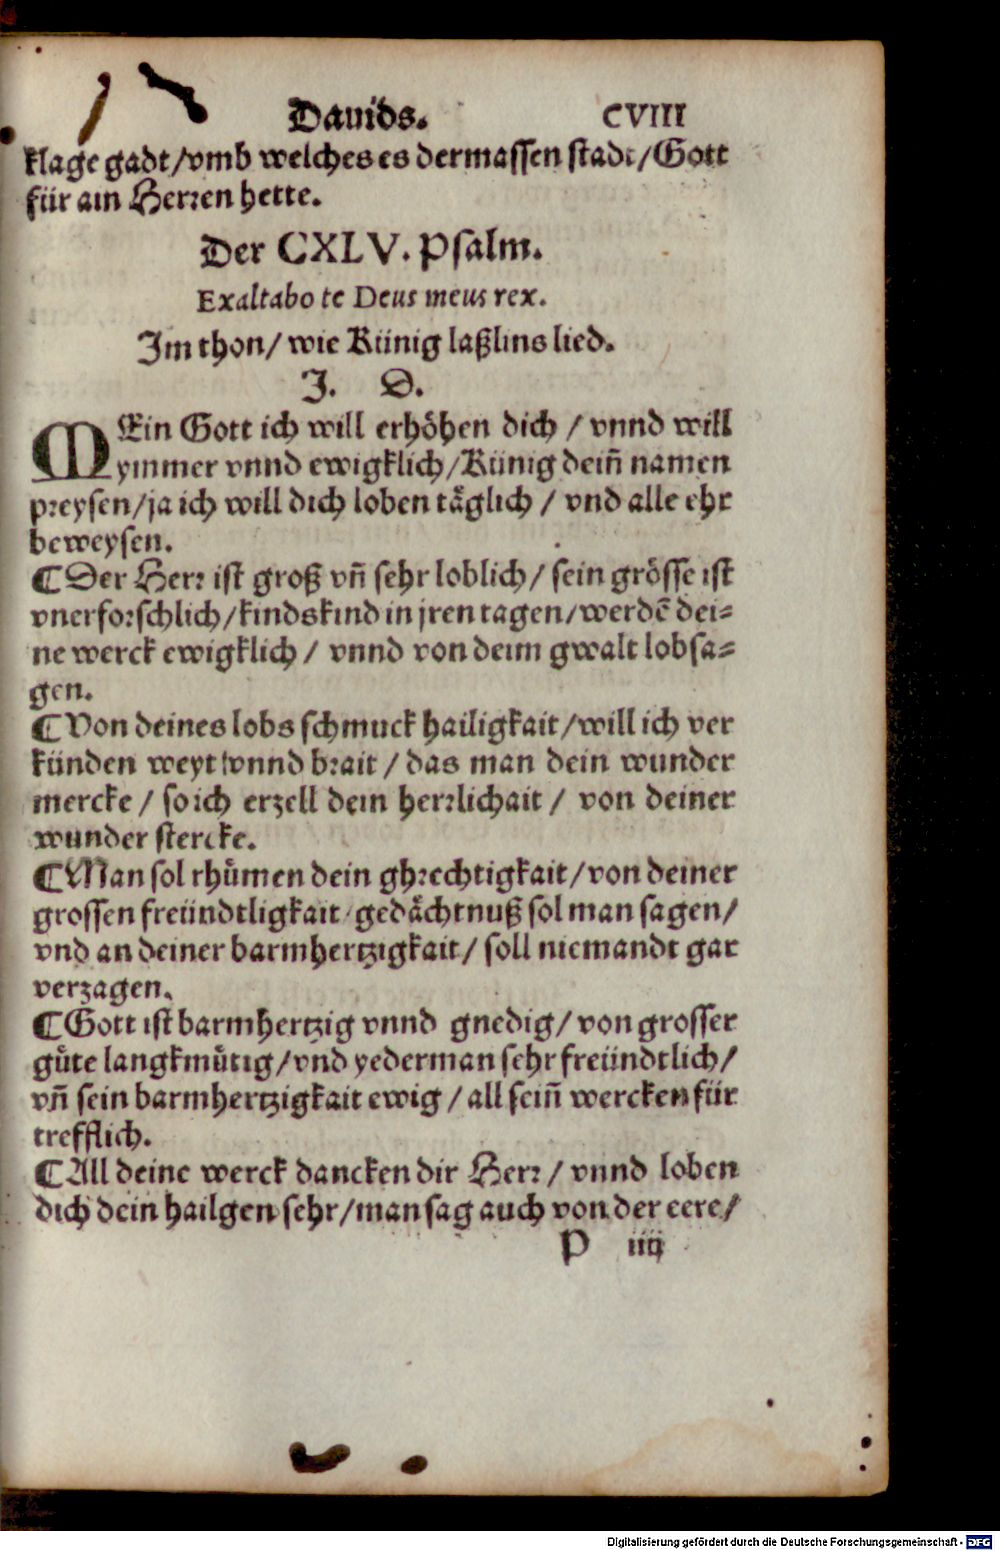 Dauids. CVIII
klage gadt/vmb welches es dermassen stadt/Gott
für ain Herren hette.
Der CXLV. Psalm.
Exaltabo te Deus meus rex.
Im thon/ wie Künig laßlins lied.
J. D.
MEin Gott ich will erhöhen dich / vnnd will
ymmer vnnd ewigklich/Künig dein̄ namen
preysen/ja ich will dich loben täglich / vnd alle ehr
beweysen.
¶Der Herr ist groß vn̄ sehr loblich/ sein grösse ist
vnerforschlich/kindskind in jren tagen/werdē dei⸗
ne werck ewigklich/ vnnd von deim gwalt lobsa⸗
gen.
¶Von deines lobs schmuck hailigkait/will ich ver
künden weyt vnnd brait / das man dein wunder
mercke / so ich erzell dein herrlichait / von deiner
wunder stercke.
¶Man sol rhůmen dein ghrechtigkait/von deiner
grossen freündtligkait/gedächtnuß sol man sagen/
vnd an deiner barmhertzigkait/ soll niemandt gar
verzagen.
¶Gott ist barmhertzig vnnd gnedig/ von grosser
gůte langkmůtig/vnd yederman sehr freündtlich/
vn̄ sein barmhertzigkait ewig / all sein̄ wercken für
trefflich.
¶All deine werck dancken dir Herr / vnnd loben
dich dein hailgen sehr/man sag auch von der eere/
P iiij
Digitalisierung gefördert durch die Deutsche Forschungsgemeinschaft - DFG